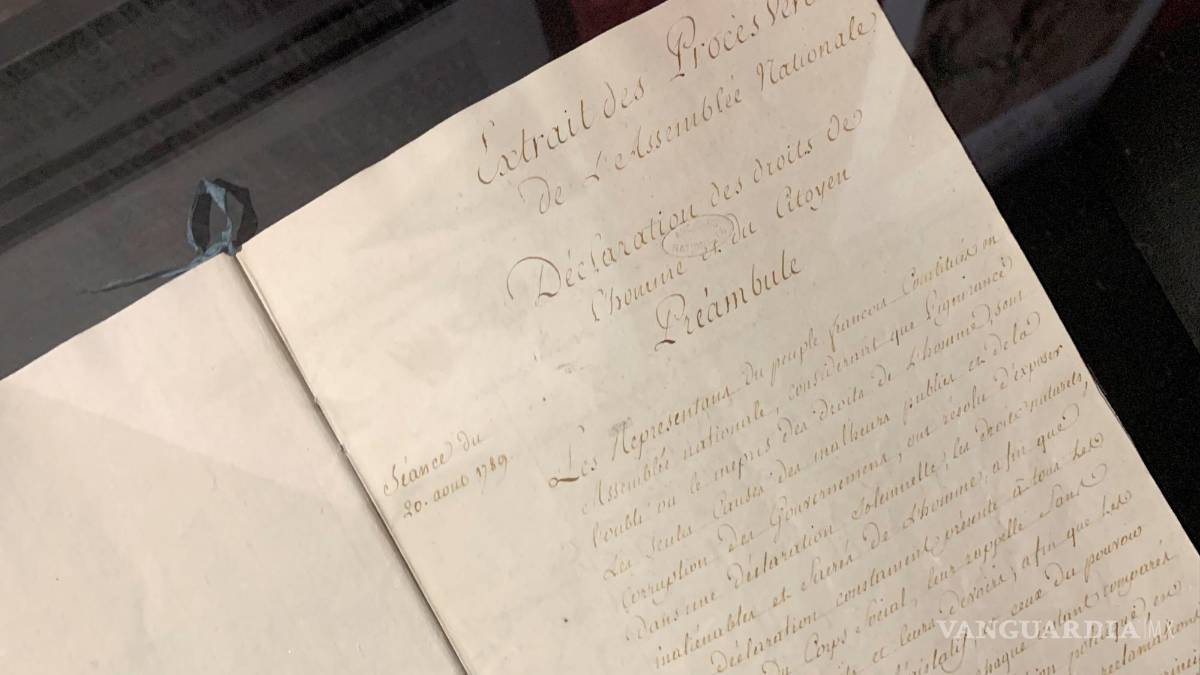 Extrait des Procès Ver
de L'Assemblée Nationale
Déclaration des droits de
l'homme et du Citoyen
Préambule
Séance du
20. aout 1789.
Les Représentans du peuple françois Constitués en
Assemblée nationale, considerant que l'ignorance
l'oubli ou le mepris des droits de L'homme, sont
Les seules Causes des malheurs publics et de la
Corruption des Gouvernemens, ont résolu d'exposer
dans une déclaration Solemnelle, les droits naturels,
inaliénables et Sacrés de L'homme, afin que
Déclaration constament présente à tous les
du Corps Social, leur rappelle Sans
et leurs devoirs, afin que les
législatif et ceux du pouvoir
chaque instant comparés
tion politique, en
reclamations
princi
VANGUARDIA MX